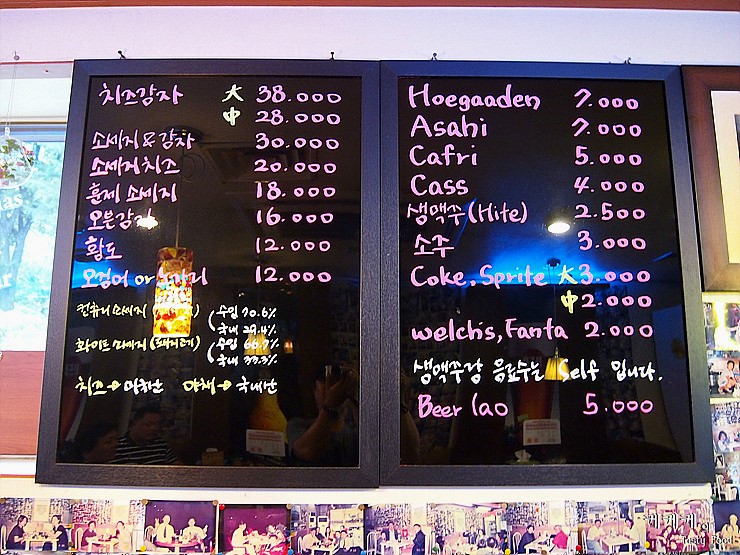 치즈감자 大 38.000
中 28.000
소세지&감자 30.000
소세지치즈 20.000
훈제 소세지 18.000
오븐감자 16.000
황도 12.000
오징어 or 노가리 12.000
컨츄리 소세지 (수입 70.6%
국내 29.4%
화이트 소세지 (돼지고기) (수입 66.7%
국내 33.3%
치즈→ 야채→ 국내산
Hoegaaden 7.000
Asahi 7.000
Cafri 5.000
Cass 4.000
생맥주(Hite) 2.500
소주 3.000
Coke, Sprite 大 3.000
中 2.000
welch's, Fanta 2.000
생맥주랑 음료수는 Self 입니다.
Beer lao 5.000